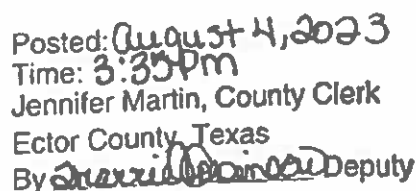 Posted: August 4, 2023
Time: 3:35pm
Jennifer Martin, County Clerk
Ector County, Texas
By Deputy